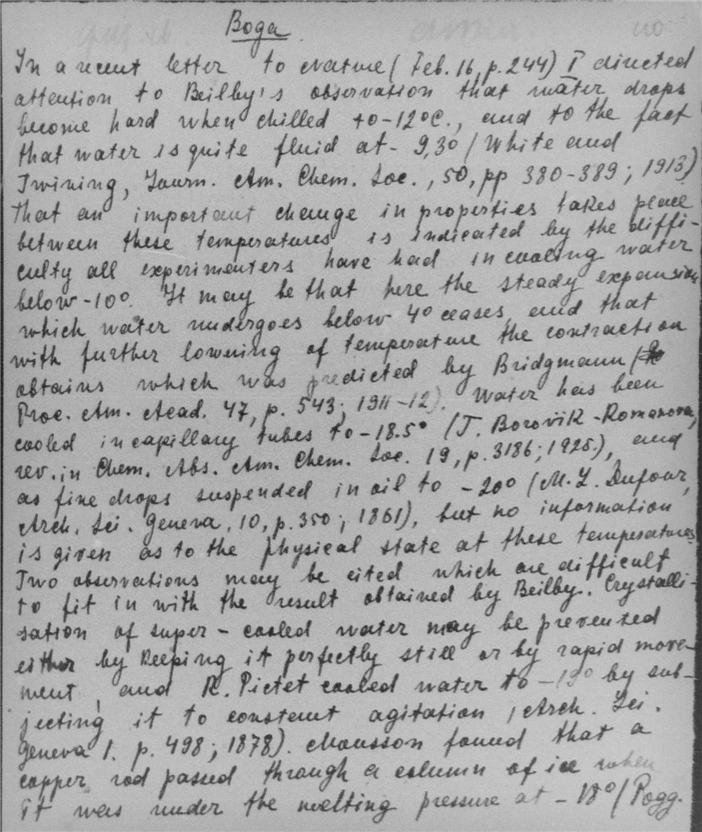 Вода
In a recent letter to Nature (Feb. 16, p. 244) I directed
attention to Beilby's observation that water drops
become hard when chilled to -12°C., and to the fact
that water is quite fluid at - 9,3° (White and
Twining, Journ. Am. Chem. Soc., 50, pp 380-389; 1913)
That an important change in properties takes place
between these temperatures is indicated by the diffi-
culty all experimenters have had in cooling water
below -10°. It may be that here the steady expansion
which water undergoes below 4° ceases, and that
with further lowering of temperature the contraction
obtains which was predicted by Bridgmann (
Proc. Am. Acad. 47, p. 543; 1911-12). Water has been
cooled in capillary tubes to -18.5° (T. Borovik-Romanova,
rev. in Chem. Abs. Am. Chem. Soc. 19, p. 3186; 1925.), and
as fine drops suspended in oil to -20° (M. L. Dufour,
Arch. Sci. Geneva, 10, p. 350; 1861), but no information
is given as to the physical state at these temperatures
Two observations may be cited which are difficult
to fit in with the result obtained by Beilby. Crystalli-
sation of super-cooled water may be prevented
either by keeping it perfectly still or by rapid move-
ment, and R. Pictet cooled water to by sub-
jecting it to constent agitation (Arch. Sci.
Geneva 1. p. 498; 1878). Mousson found that a
copper rod passed through a column of ice when
it was under the melting pressure at -18° (Pogg.